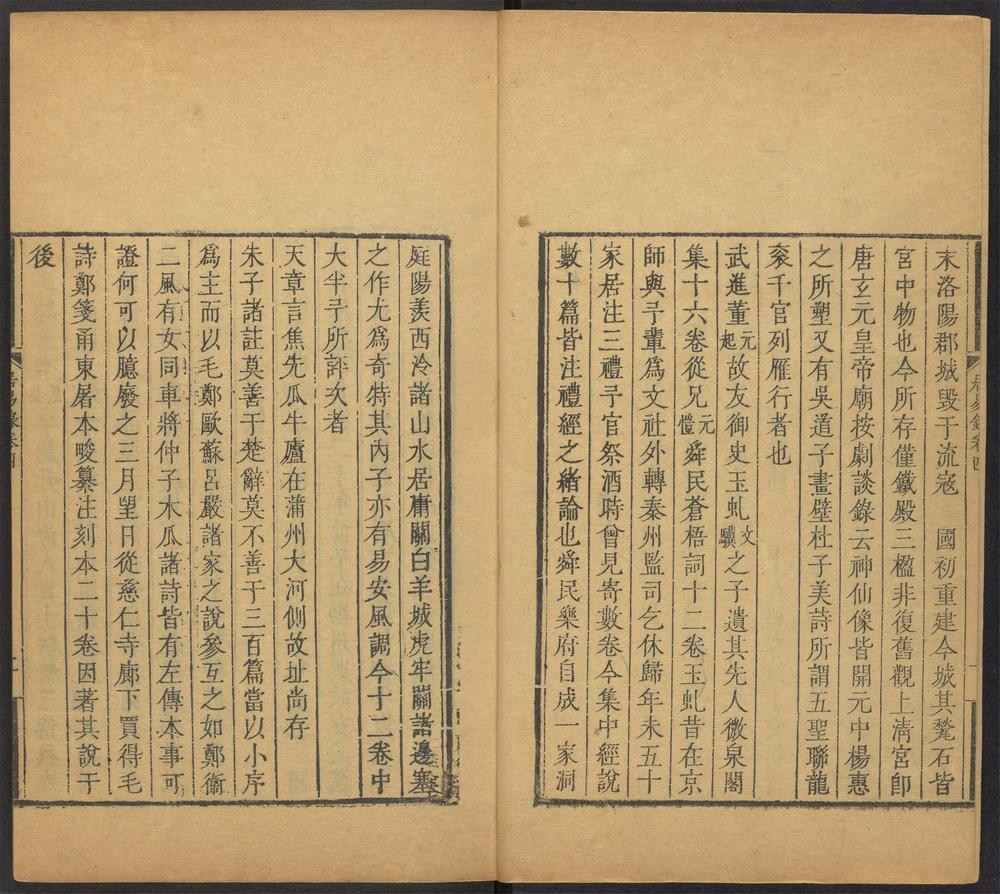 末洛陽郡城毀于流寇　國初重建今城其甃石皆
宮中物也今所存僅鐵殿三楹非復舊觀上清宮卽
唐玄元皇帝廟按劇談錄云神仙像皆開元中楊惠
之所塑又有吳道子畫壁杜子美詩所謂五聖聯龍
袞千官列雁行者也
武進董元起故友御史玉虬文驥之子遺其先人微泉閣
集十六卷從兄元愷舜民蒼梧詞十二卷玉虬昔在京
師與予輩爲文社外轉秦州監司乞休歸年未五十
家居注三禮予官祭酒時曾見寄數卷今集中經說
數十篇皆注禮經之緒論也舜民樂府自成一家洞
庭陽羨西泠諸山水居庸關白羊城虎牢關諸邊塞
之作尤爲奇特其內子亦有易安風調今十二卷中
大半予所評次者
天章言焦先瓜牛廬在蒲州大河側故址尚存
朱子諸註莫善于楚辭莫不善于三百篇當以小序
爲主而以毛鄭歐蘇呂嚴諸家之說參互之如鄭衛
二風有女同車將仲子木瓜諸詩皆有左傳本事可
證何可以臆廢之三月望日從慈仁寺廊下買得毛
詩鄭箋甬東屠本畯纂注刻本二十卷因著其說于
後
居易錄卷四